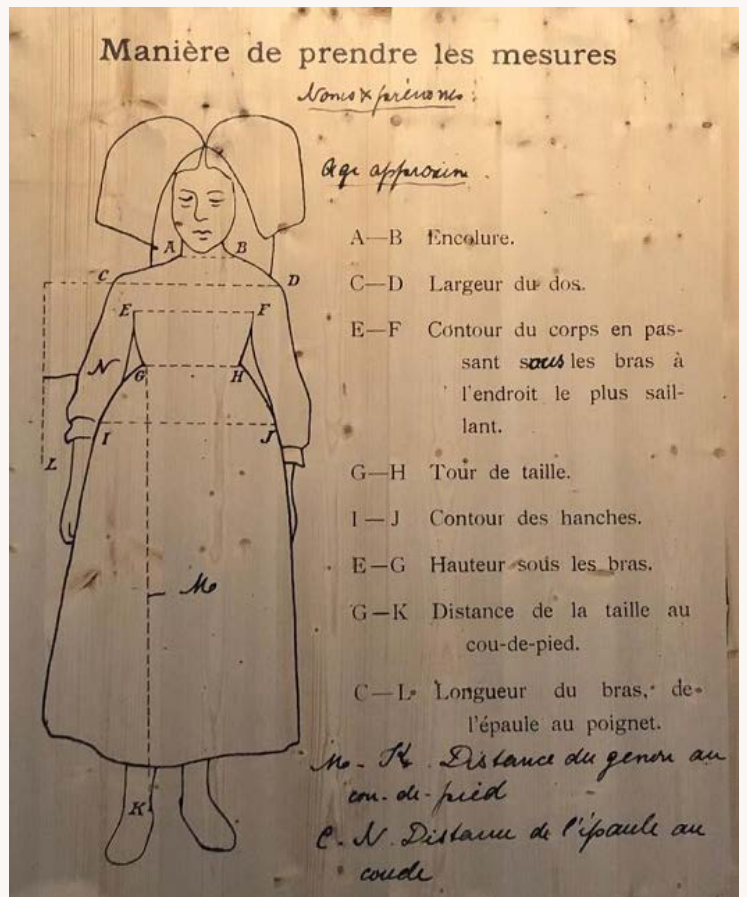 Manière de prendre les mesures
Noms & prénoms :
Age approxim.
A B
C D
E F
N
G H
I J
L
M
K
A—B Encolure.
C—D Largeur du dos.
E—F Contour du corps en pas-
sant sous les bras à
l'endroit le plus sail-
lant.
G—H Tour de taille.
I—J Contour des hanches.
E—G Hauteur sous les bras.
G—K Distance de la taille au
cou-de-pied.
C—L Longueur du bras, de
l'épaule au poignet.
M - K. Distance du genou au
cou-de-pied
C. N. Distance de l'épaule au
coude